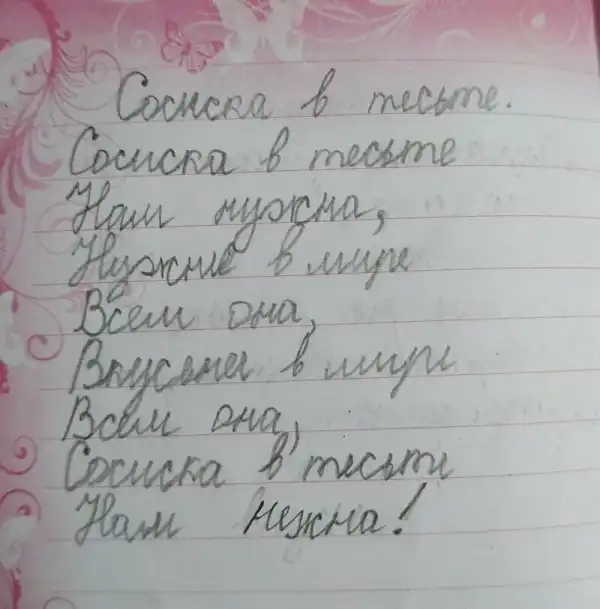 Сосиска в тесьте.
Сосиска в тесьте
Нам нужна,
Нужние в мире
Всем она,
Вкусьнеи в мире
Всем она,
Сосиска в тесьте
Нам нежна!